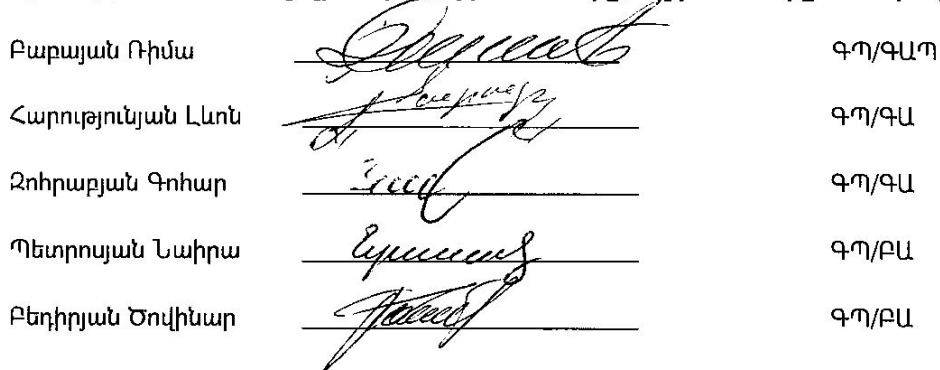 Բաբայան Ռիմա ԳՊ/ԳԱՊ
Հարությունյան Լևոն ԳՊ/ԳԱ
Զոհրաբյան Գոհար ԳՊ/ԳԱ
Պետրոսյան Նաիրա ԳՊ/ԲԱ
Բեդիրյան Ծովինար ԳՊ/ԲԱ